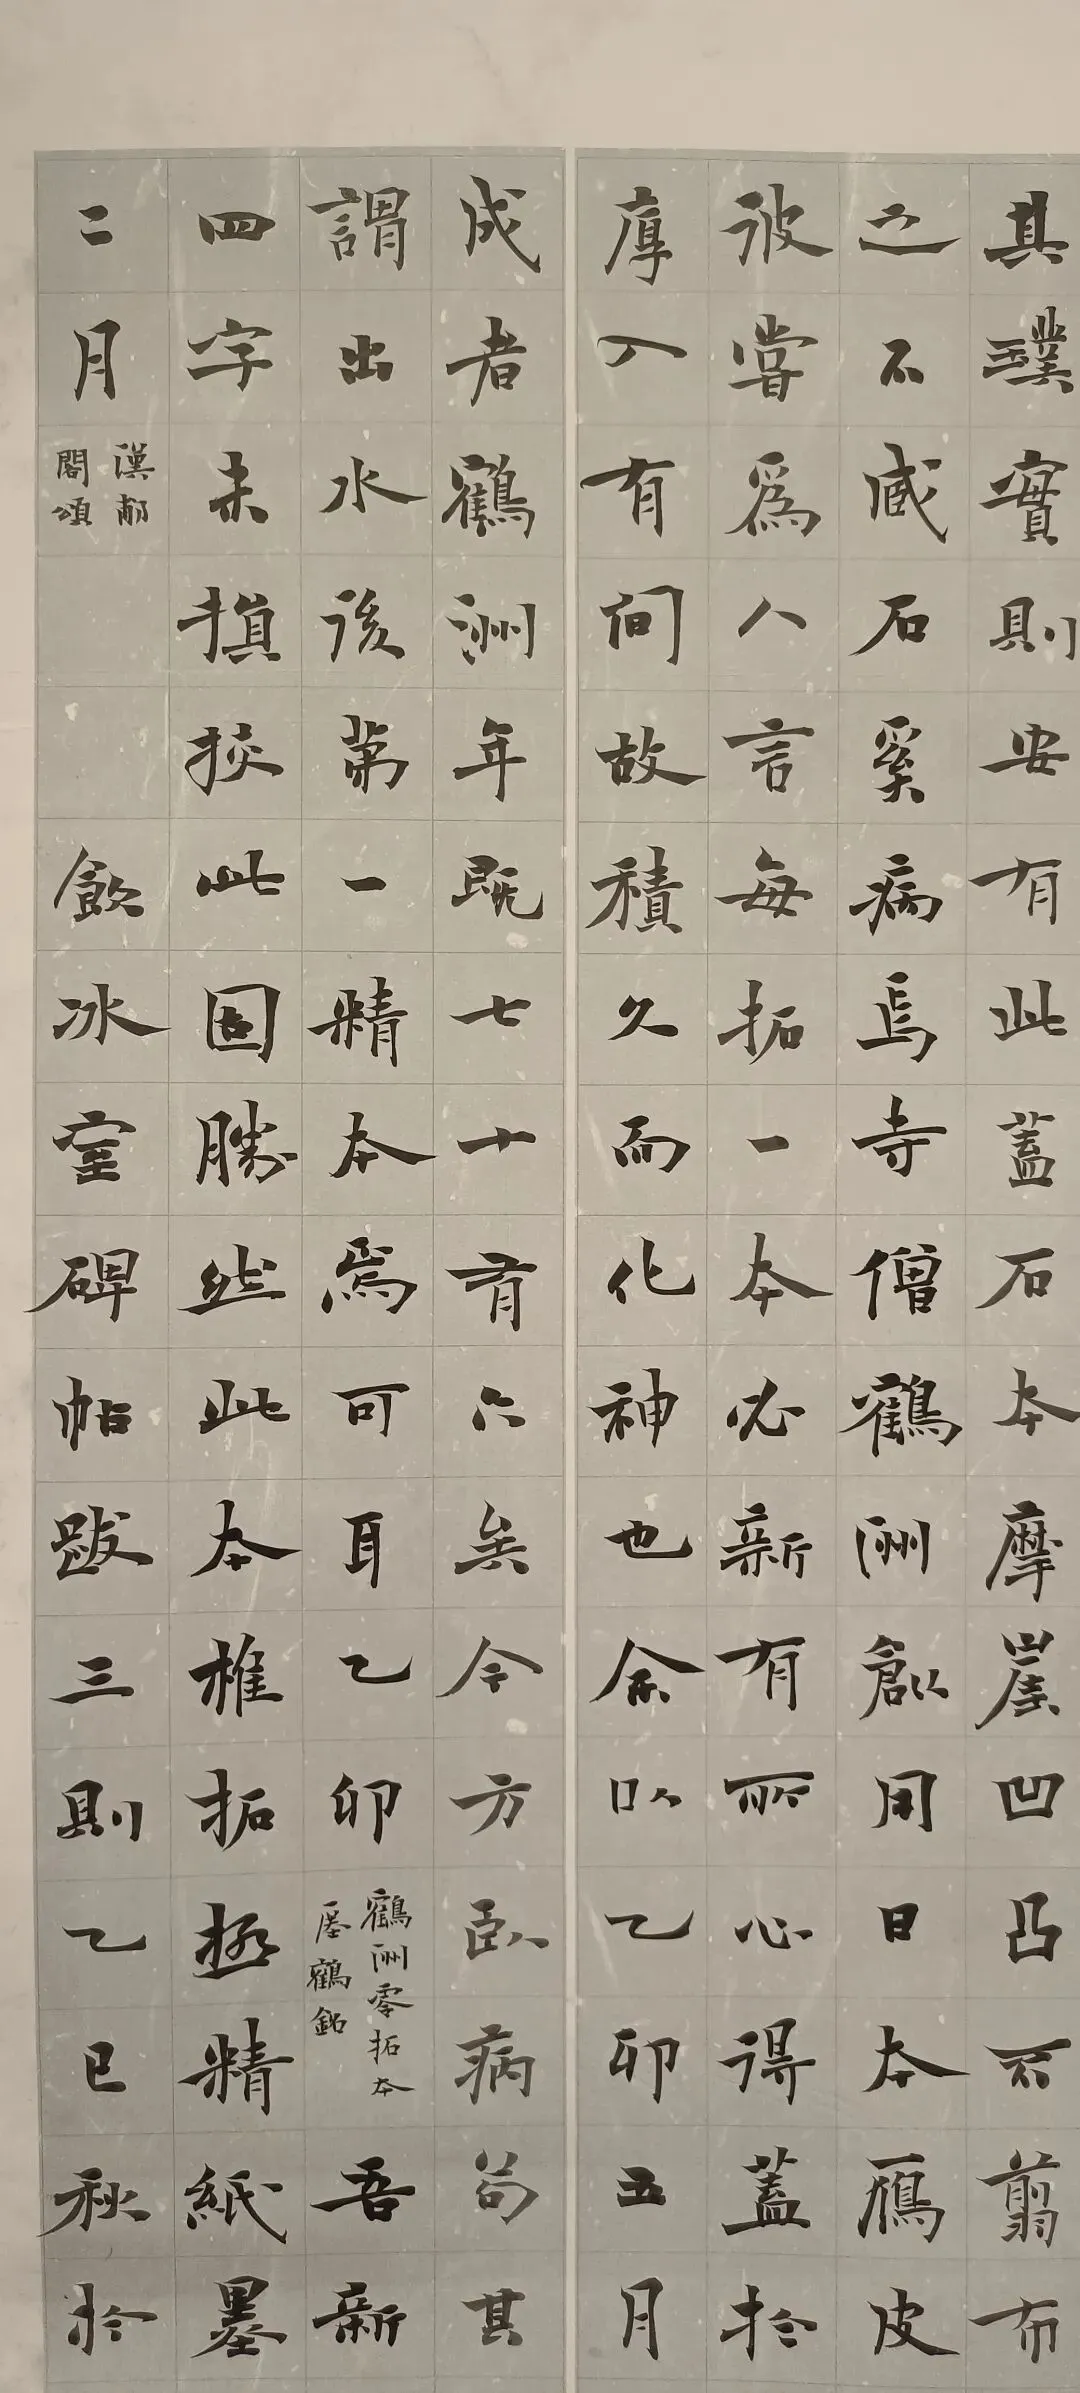 其璞實則安有此蓋石本摩崖凹凸不翦布
之不咸石奚病焉寺僧鶴洲創用日本鴈皮
彼嘗爲人言每拓一本必新有所心得蓋於
厚入有间故積久而化神也余以乙卯五月
成者鶴洲年既七十有六矣今方臥病苟其
謂出水後第一精本焉可耳乙卯
鶴洲零拓本
瘞鶴銘
吾新
四字未損挍此固勝然此本椎拓極精紙墨
二月
漢郙
閣頌
飲冰室碑帖跋三則乙巳秋於